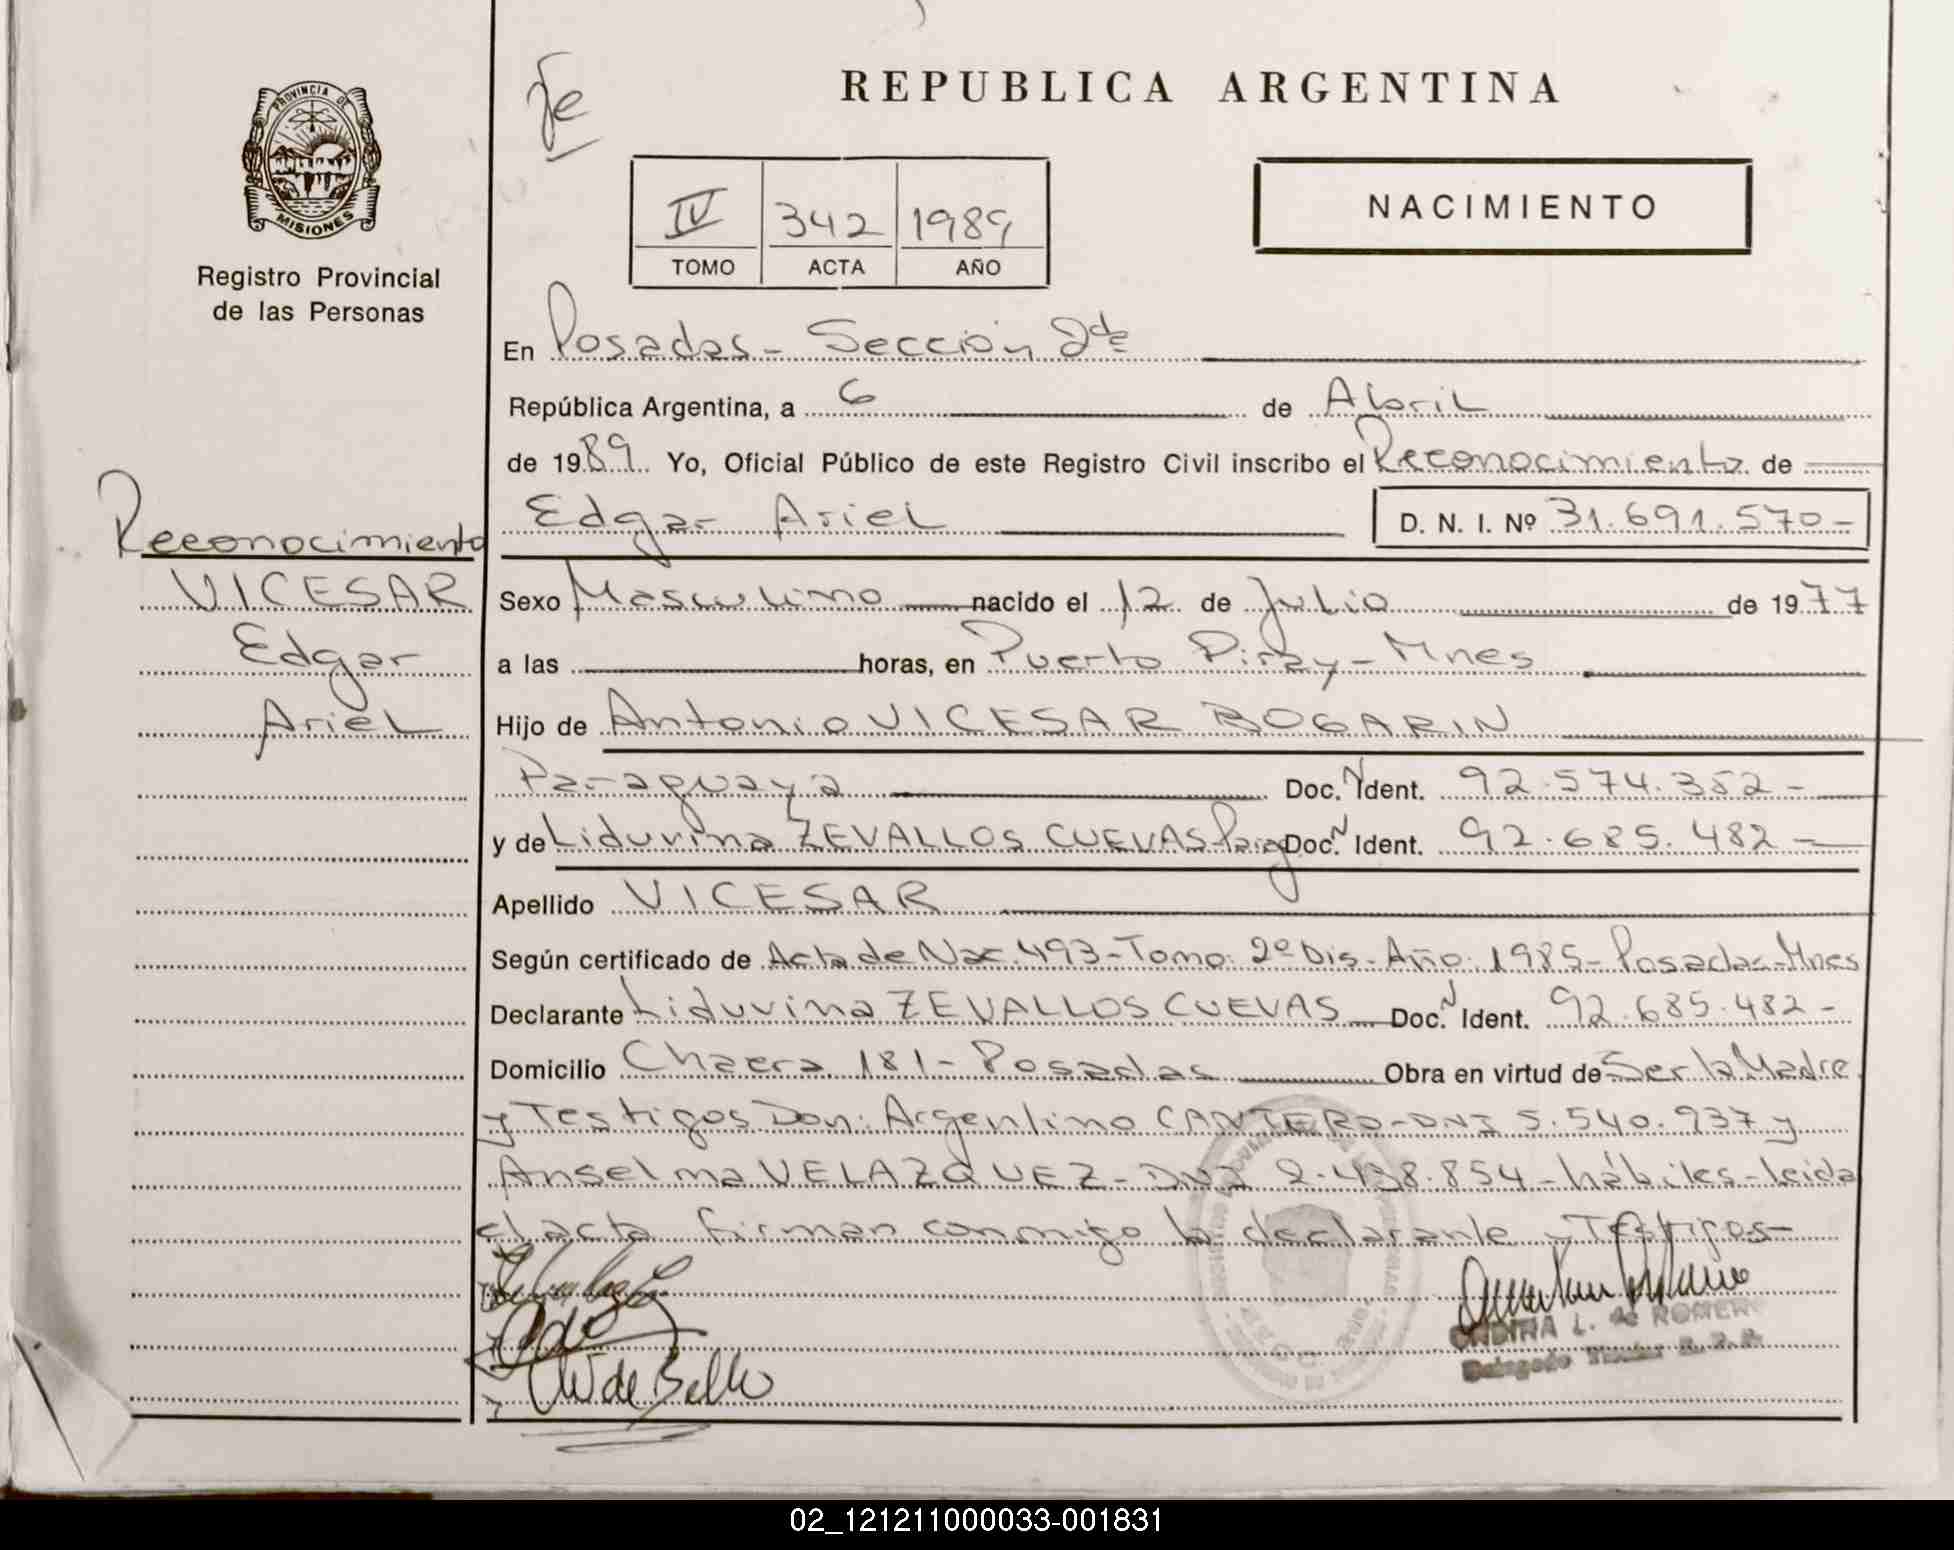 PROVINCIA DE
MISIONES
Registro Provincial
de las Personas
Reconocimiento
VICESAR
Edgar
Ariel
REPUBLICA ARGENTINA
IV 342 1989
TOMO ACTA AÑO
NACIMIENTO
En Posadas - Sección 2da
República Argentina, a 6 de Abril
de 1989. Yo, Oficial Público de este Registro Civil inscribo el Reconocimiento de
Edgar Ariel D. N. I. Nº 31.691.570-
Sexo Masculino nacido el 12 de Julio de 1977
a las horas, en Puerto Piray - Mnes
Hijo de Antonio VICESAR BOGARIN
Paraguaya Doc. N Ident. 92.574.352-
y de Liduvina ZEVALLOS CUEVAS Parag Doc. N Ident. 92.685.482-
Apellido VICESAR
Según certificado de Acta de Nac. 493-Tomo: 2º Dis-Año: 1985-Posadas-Mnes
Declarante Liduvina ZEVALLOS CUEVAS Doc. N Ident. 92.685.482-
Domicilio Chacra 181 - Posadas Obra en virtud de Ser la Madre
y Testigos Don: Argentino CANTERO-DNI 5.540.937 y
Anselma VELAZQUEZ-DNI 2.438.854-hábiles-leida
el acta firman conmigo la declarante y Testigos-
de Bello
ONDINA L. de ROMERO
Delegado Titular R. P. P.
02_121211000033-001831